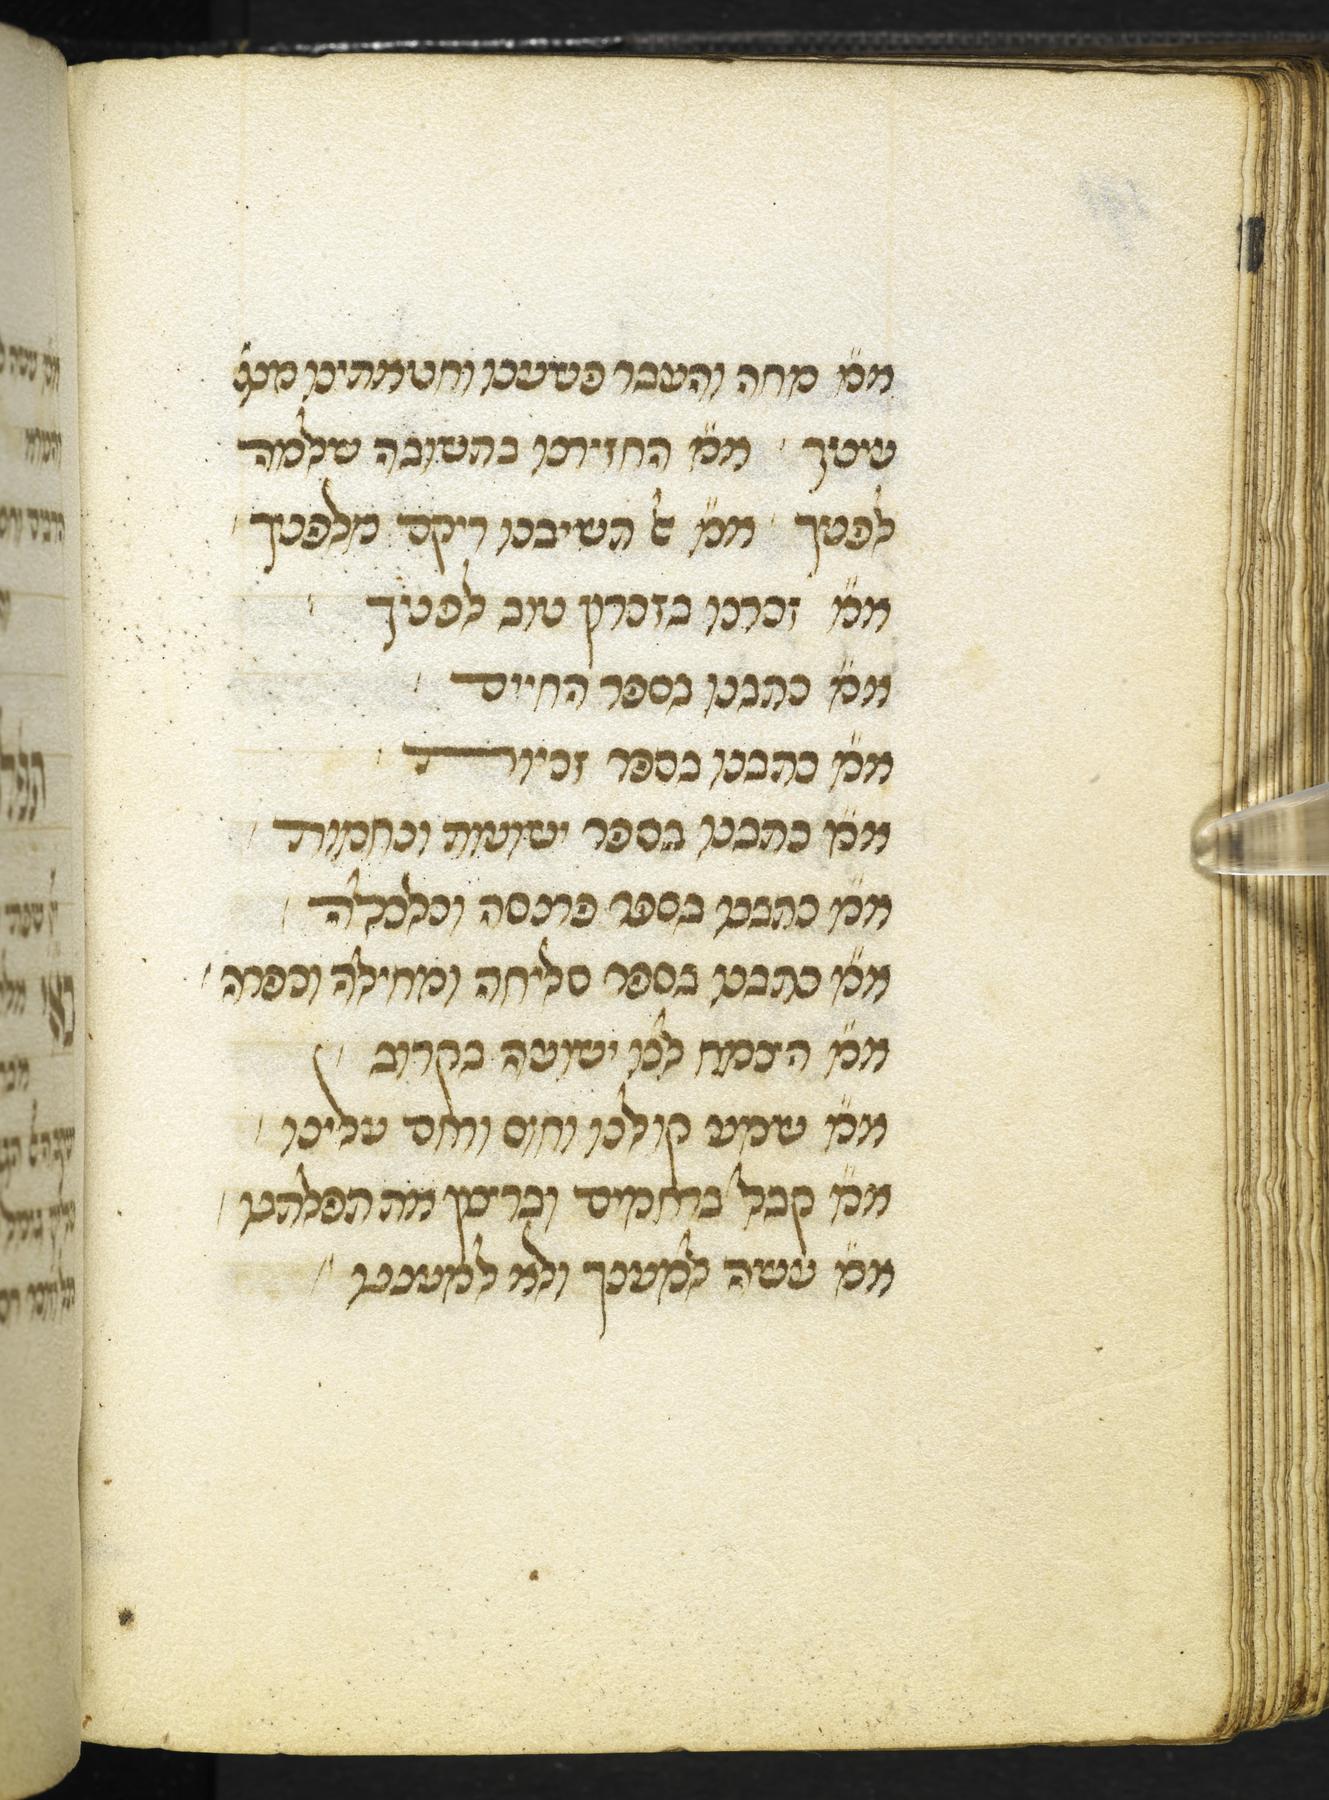 א״מ מחה והעבר פשעינו וחטאתינו מנג׳
עיניך א״מ החזירנו בתשובה שלמה
לפניך א״מ אל תשיבנו ריקם מלפניך
א״מ זכרנו בזכרון טוב לפניך
א״מ כתבנו בספר החיים
א״מ כתבנו בספר זכיות
א״מ כתבנו בספר ישועות ונחמות
א״מ כתבנו בספר פרנסה וכלכלה
א״מ כתבנו בספר סליחה ומחילה וכפרה
א״מ הצמח לנו ישועה בקרוב
א״מ שמע קולנו וחוס ורחם עלינו
א״מ קבל ברחמים וברצון את תפלתנו
א״מ עשה למענך ולא למעננו